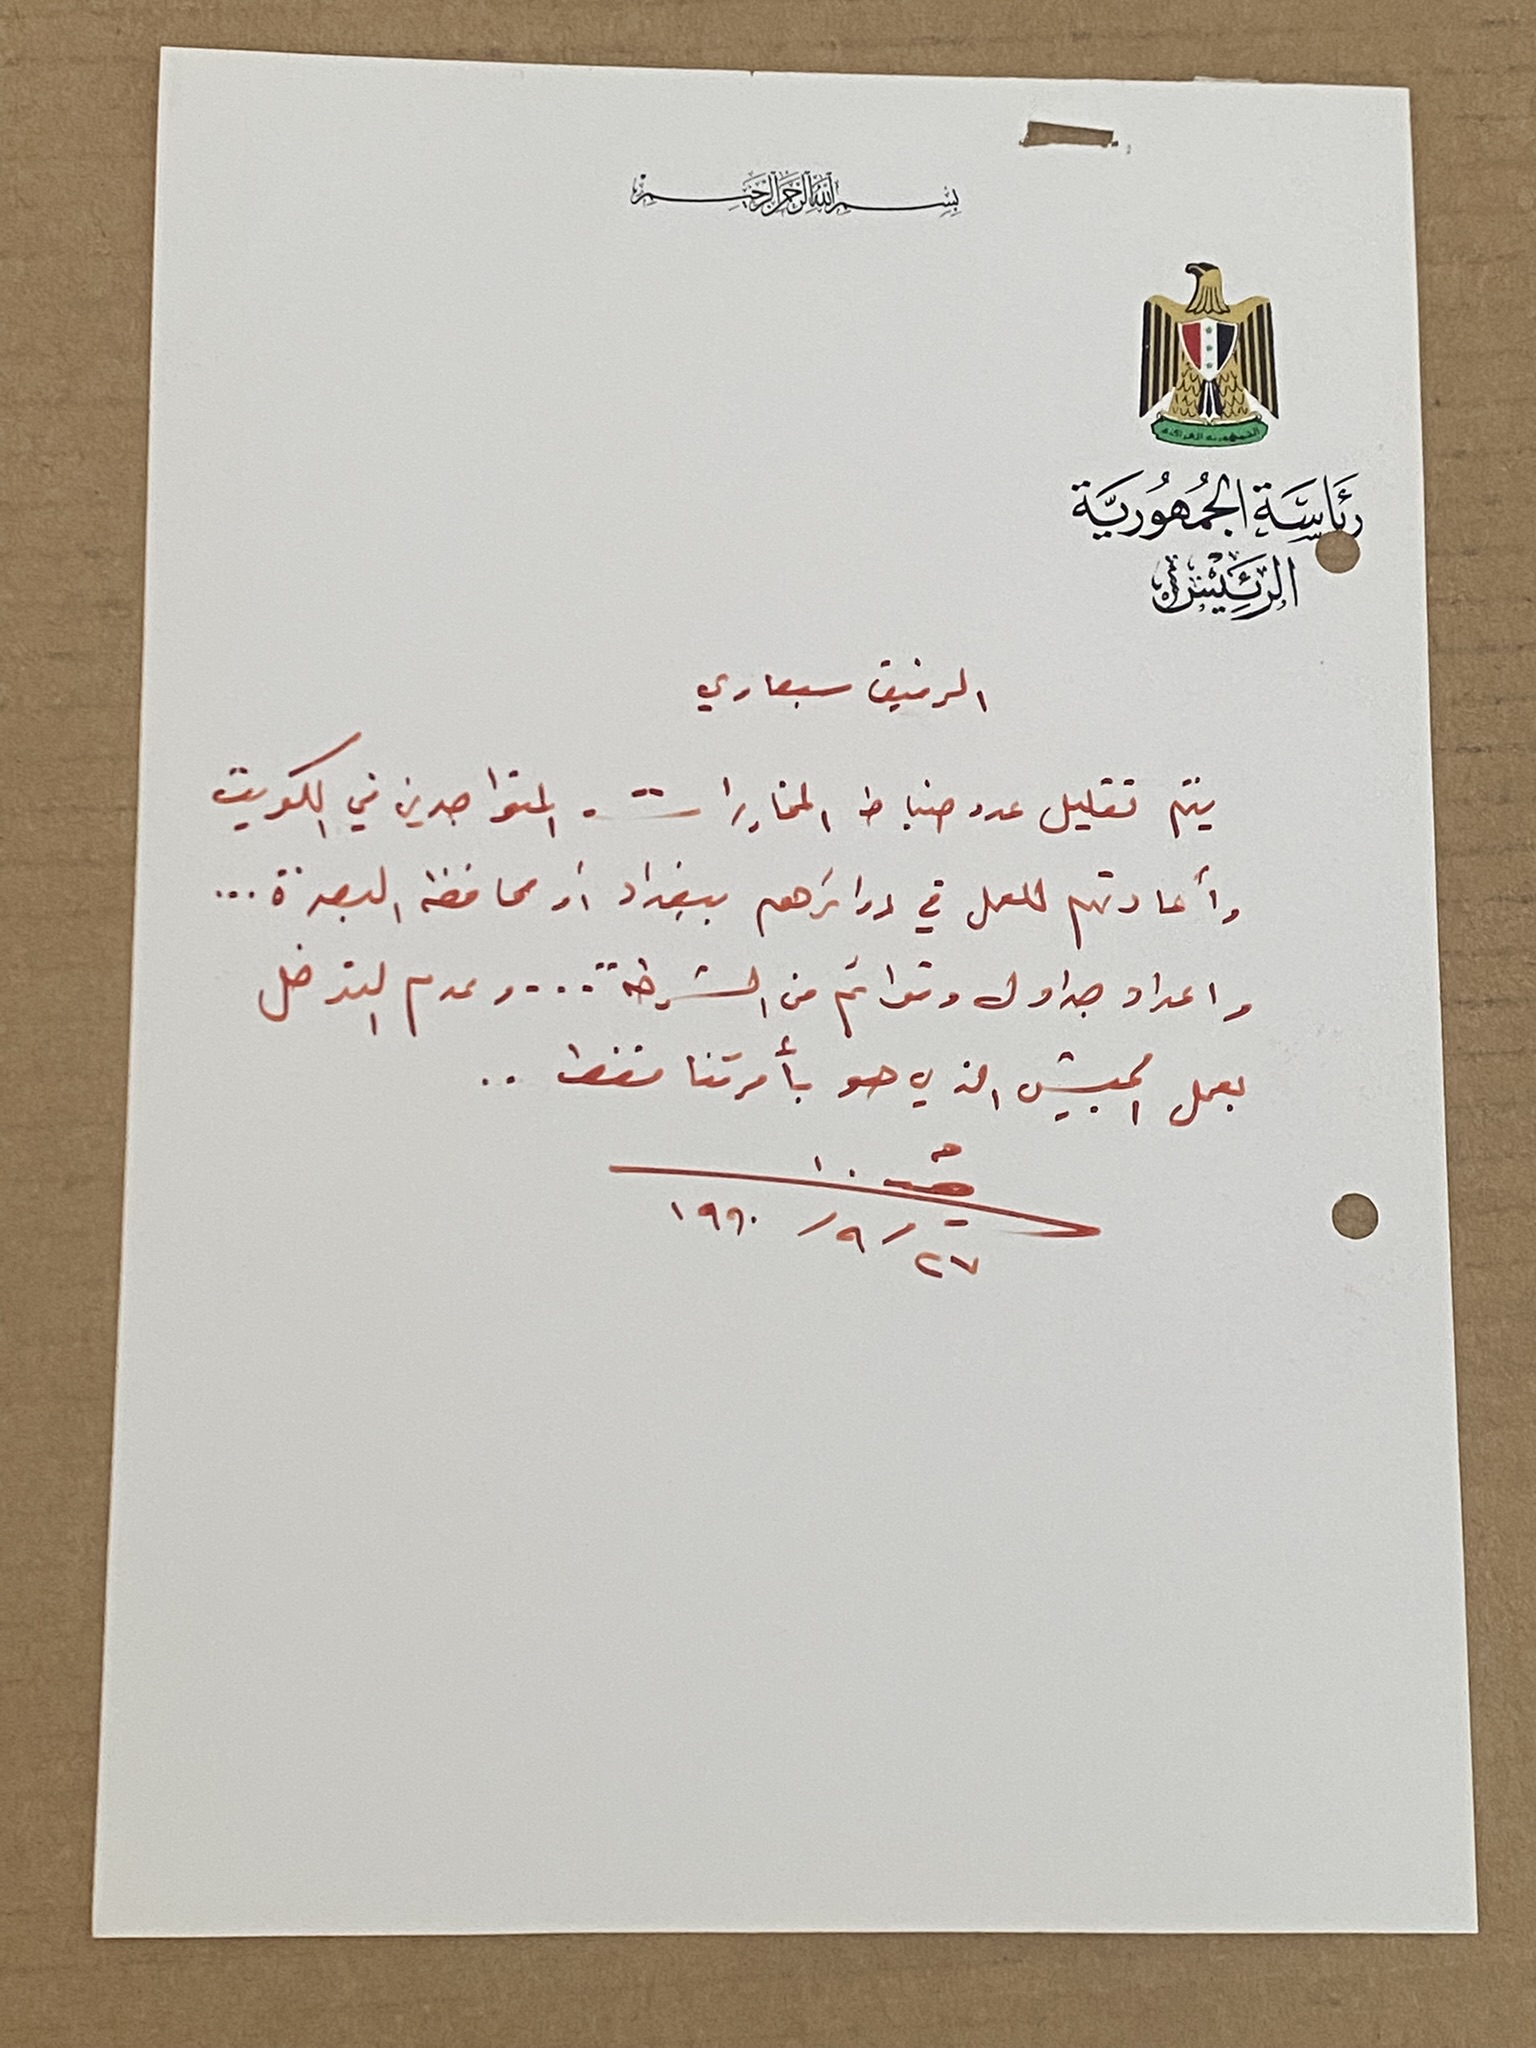 بسم الله الرحمن الرحيم
الجمهورية العراقية
رئاسة الجمهورية
الرئيس
الرفيق سبعاوي
يتم تقليل عدد ضباط المخابرات المتواجدين في الكويت
وأعادتهم للعمل في دوائرهم ببغداد أو محافظة البصرة ...
واعداد جداول وقوائم من الشرطة .... وعدم التدخل
بعمل الجيش الذي هو بأمرتنا فقط ..
٢٧ / ٩ / ١٩٩٠